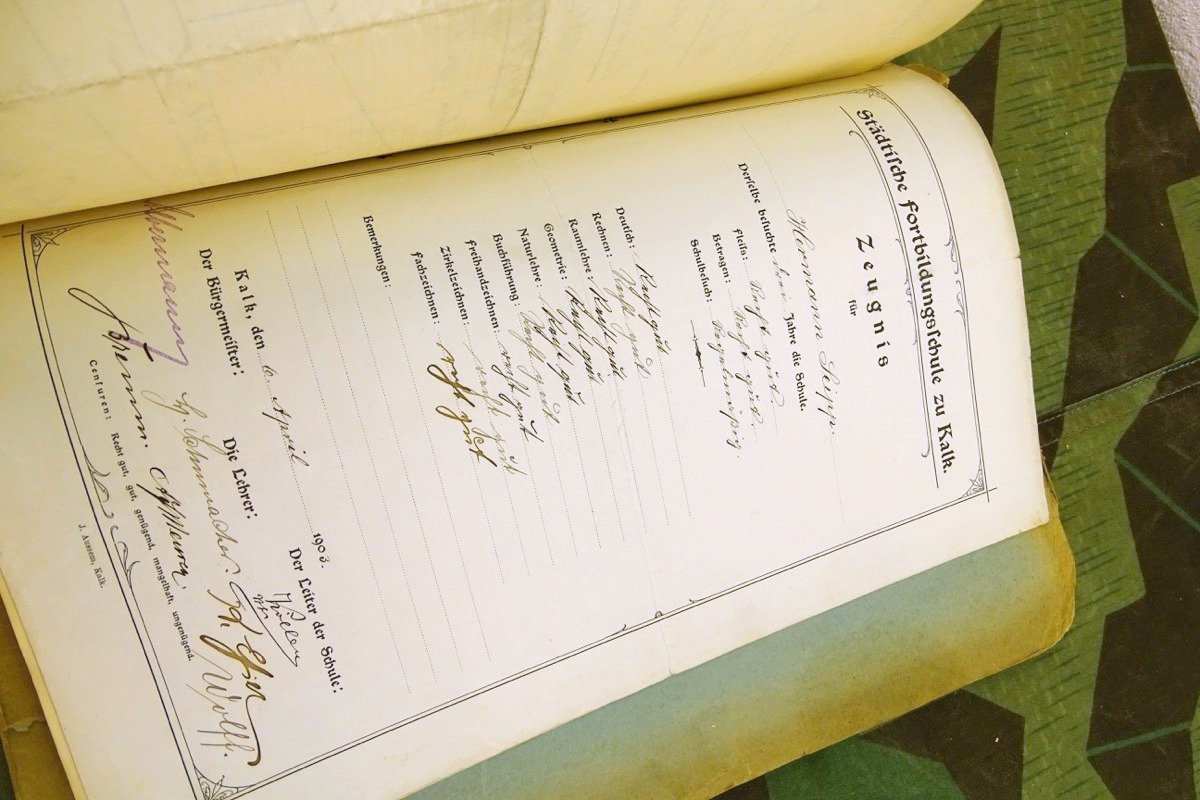 Städtische Fortbildungsschule zu Kalk.
Zeugnis
für
Hermann
Derselbe besuchte Jahre die Schule.
Fleiß: Recht gut
Betragen: Recht gut.
Schulbesuch: Regelmäßig.
Deutsch: Recht gut
Rechnen: Recht gut
Raumlehre: Recht gut
Geometrie: Recht gut
Naturlehre: Recht gut
Buchführung: Recht gut
Freihandzeichnen: recht gut
Zirkelzeichnen: recht gut
Fachzeichnen: recht gut
Bemerkungen:
Kalk, den 6. April 1903.
Der Bürgermeister: Die Lehrer: Der Leiter der Schule:
Wolff.
Censuren: Recht gut, gut, genügend, mangelhaft, ungenügend.
J. Aussem, Kalk.